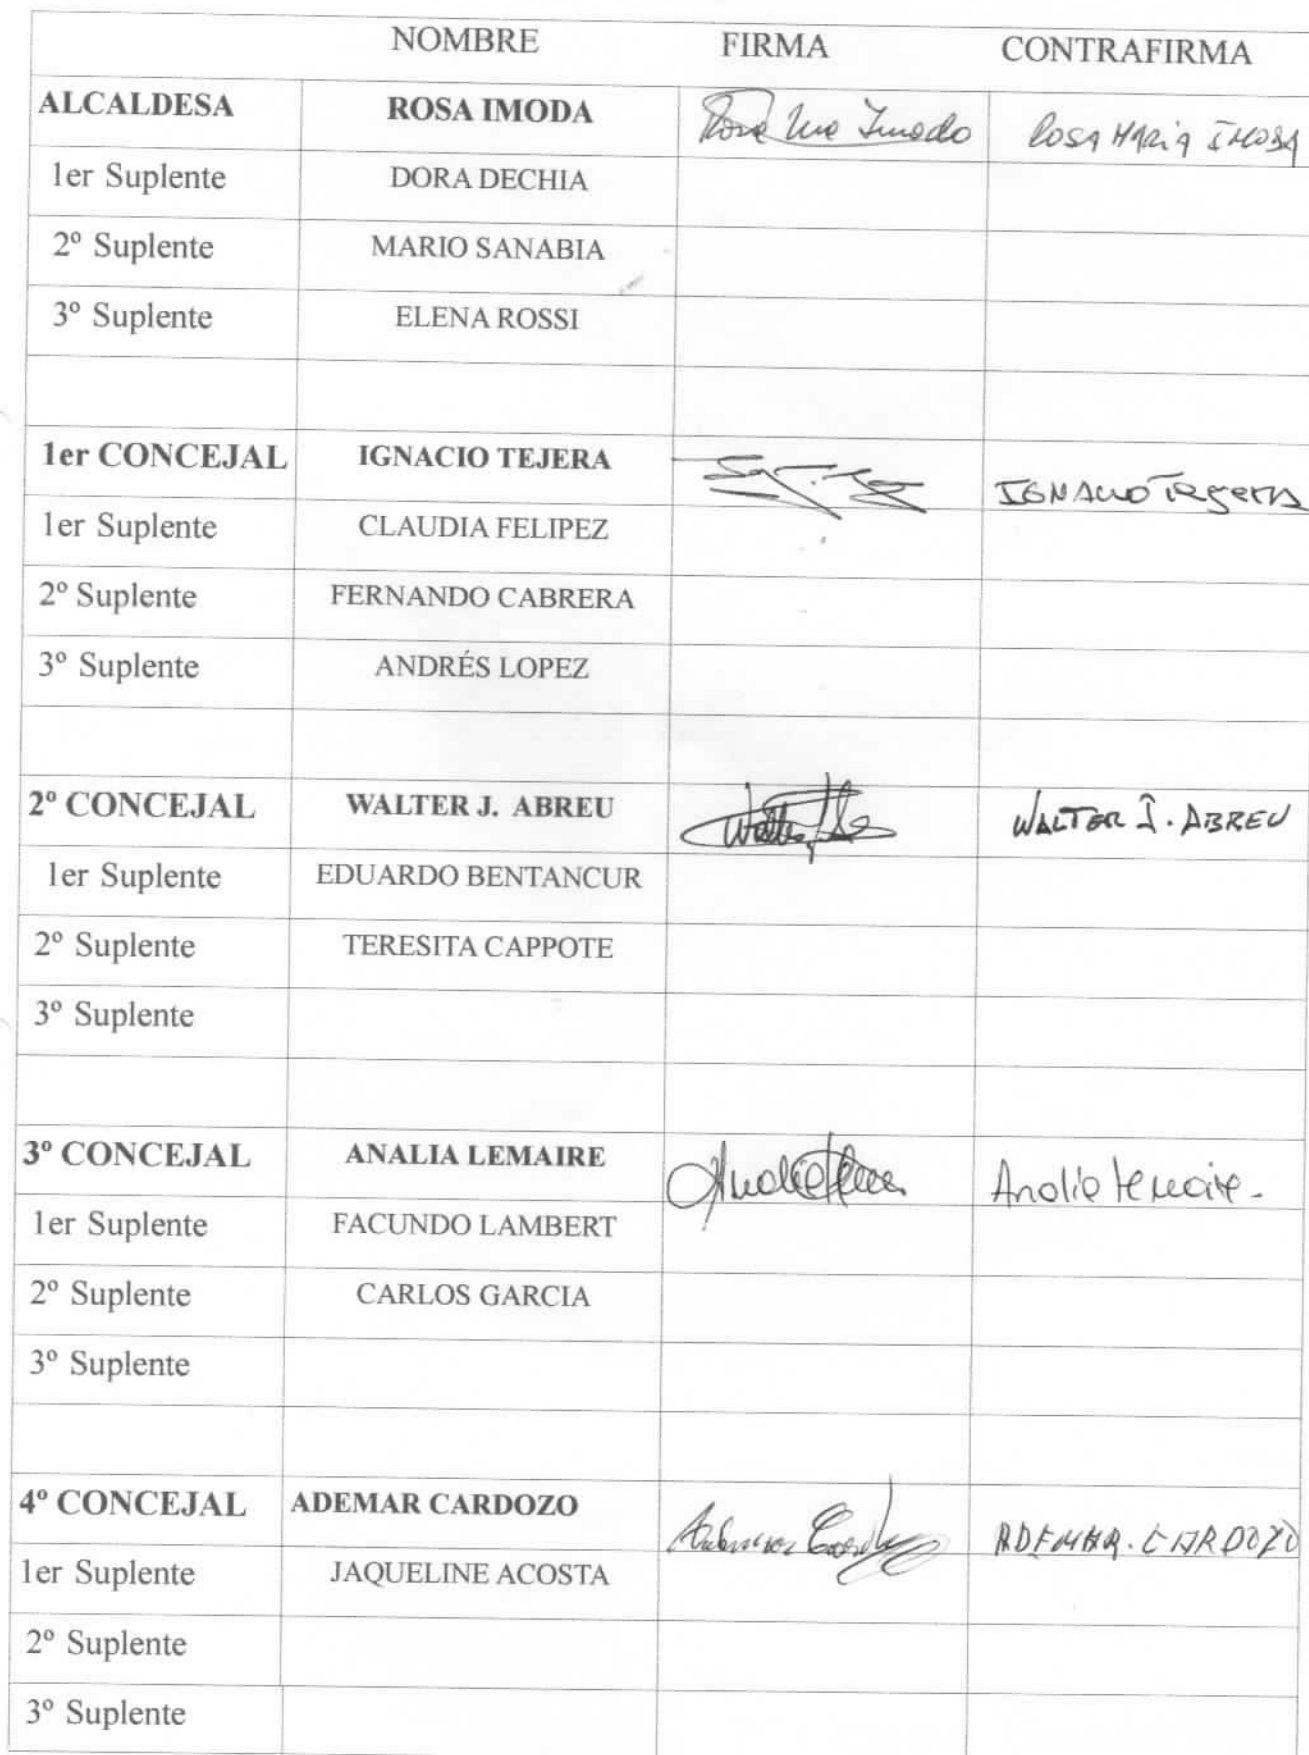 NOMBRE FIRMA CONTRAFIRMA
ALCALDESA ROSA IMODA Rosa Ma Imoda ROSA MARIA IMODA
1er Suplente DORA DECHIA
2º Suplente MARIO SANABIA
3º Suplente ELENA ROSSI
1er CONCEJAL IGNACIO TEJERA IGNACIO TEJERA
1er Suplente CLAUDIA FELIPEZ
2º Suplente FERNANDO CABRERA
3º Suplente ANDRÉS LOPEZ
2º CONCEJAL WALTER J. ABREU WALTER J. ABREU
1er Suplente EDUARDO BENTANCUR
2º Suplente TERESITA CAPPOTE
3º Suplente
3º CONCEJAL ANALIA LEMAIRE Analia Lemaire.
1er Suplente FACUNDO LAMBERT
2º Suplente CARLOS GARCIA
3º Suplente
4º CONCEJAL ADEMAR CARDOZO ADEMAR. CARDOZO
1er Suplente JAQUELINE ACOSTA
2º Suplente
3º Suplente